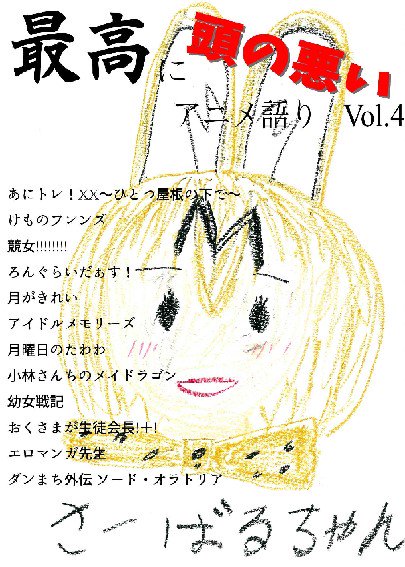 最高に頭の悪い
アニメ語り Vol.4
あにトレ！XX～ひとつ屋根の下で～
けものフレンズ
競女!!!!!!!!
ろんぐらいだぁす！
月がきれい
アイドルメモリーズ
月曜日のたわわ
小林さんちのメイドラゴン
幼女戦記
おくさまが生徒会長!+!
エロマンガ先生
ダンまち外伝 ソード・オラトリア
さーばるちゃん